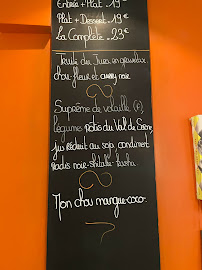 Entrée + Plat . 19€
Plat + Dessert . 19€
La Complète . 23€
Truite du Jura en gravelax
chou-fleur et curry noir
Suprême de volaille (F),
légumes rôtis du Val de Saône,
jus réduit au soja, condiment
radis noir-shitaké-kasha
Mon chou mangue-coco.